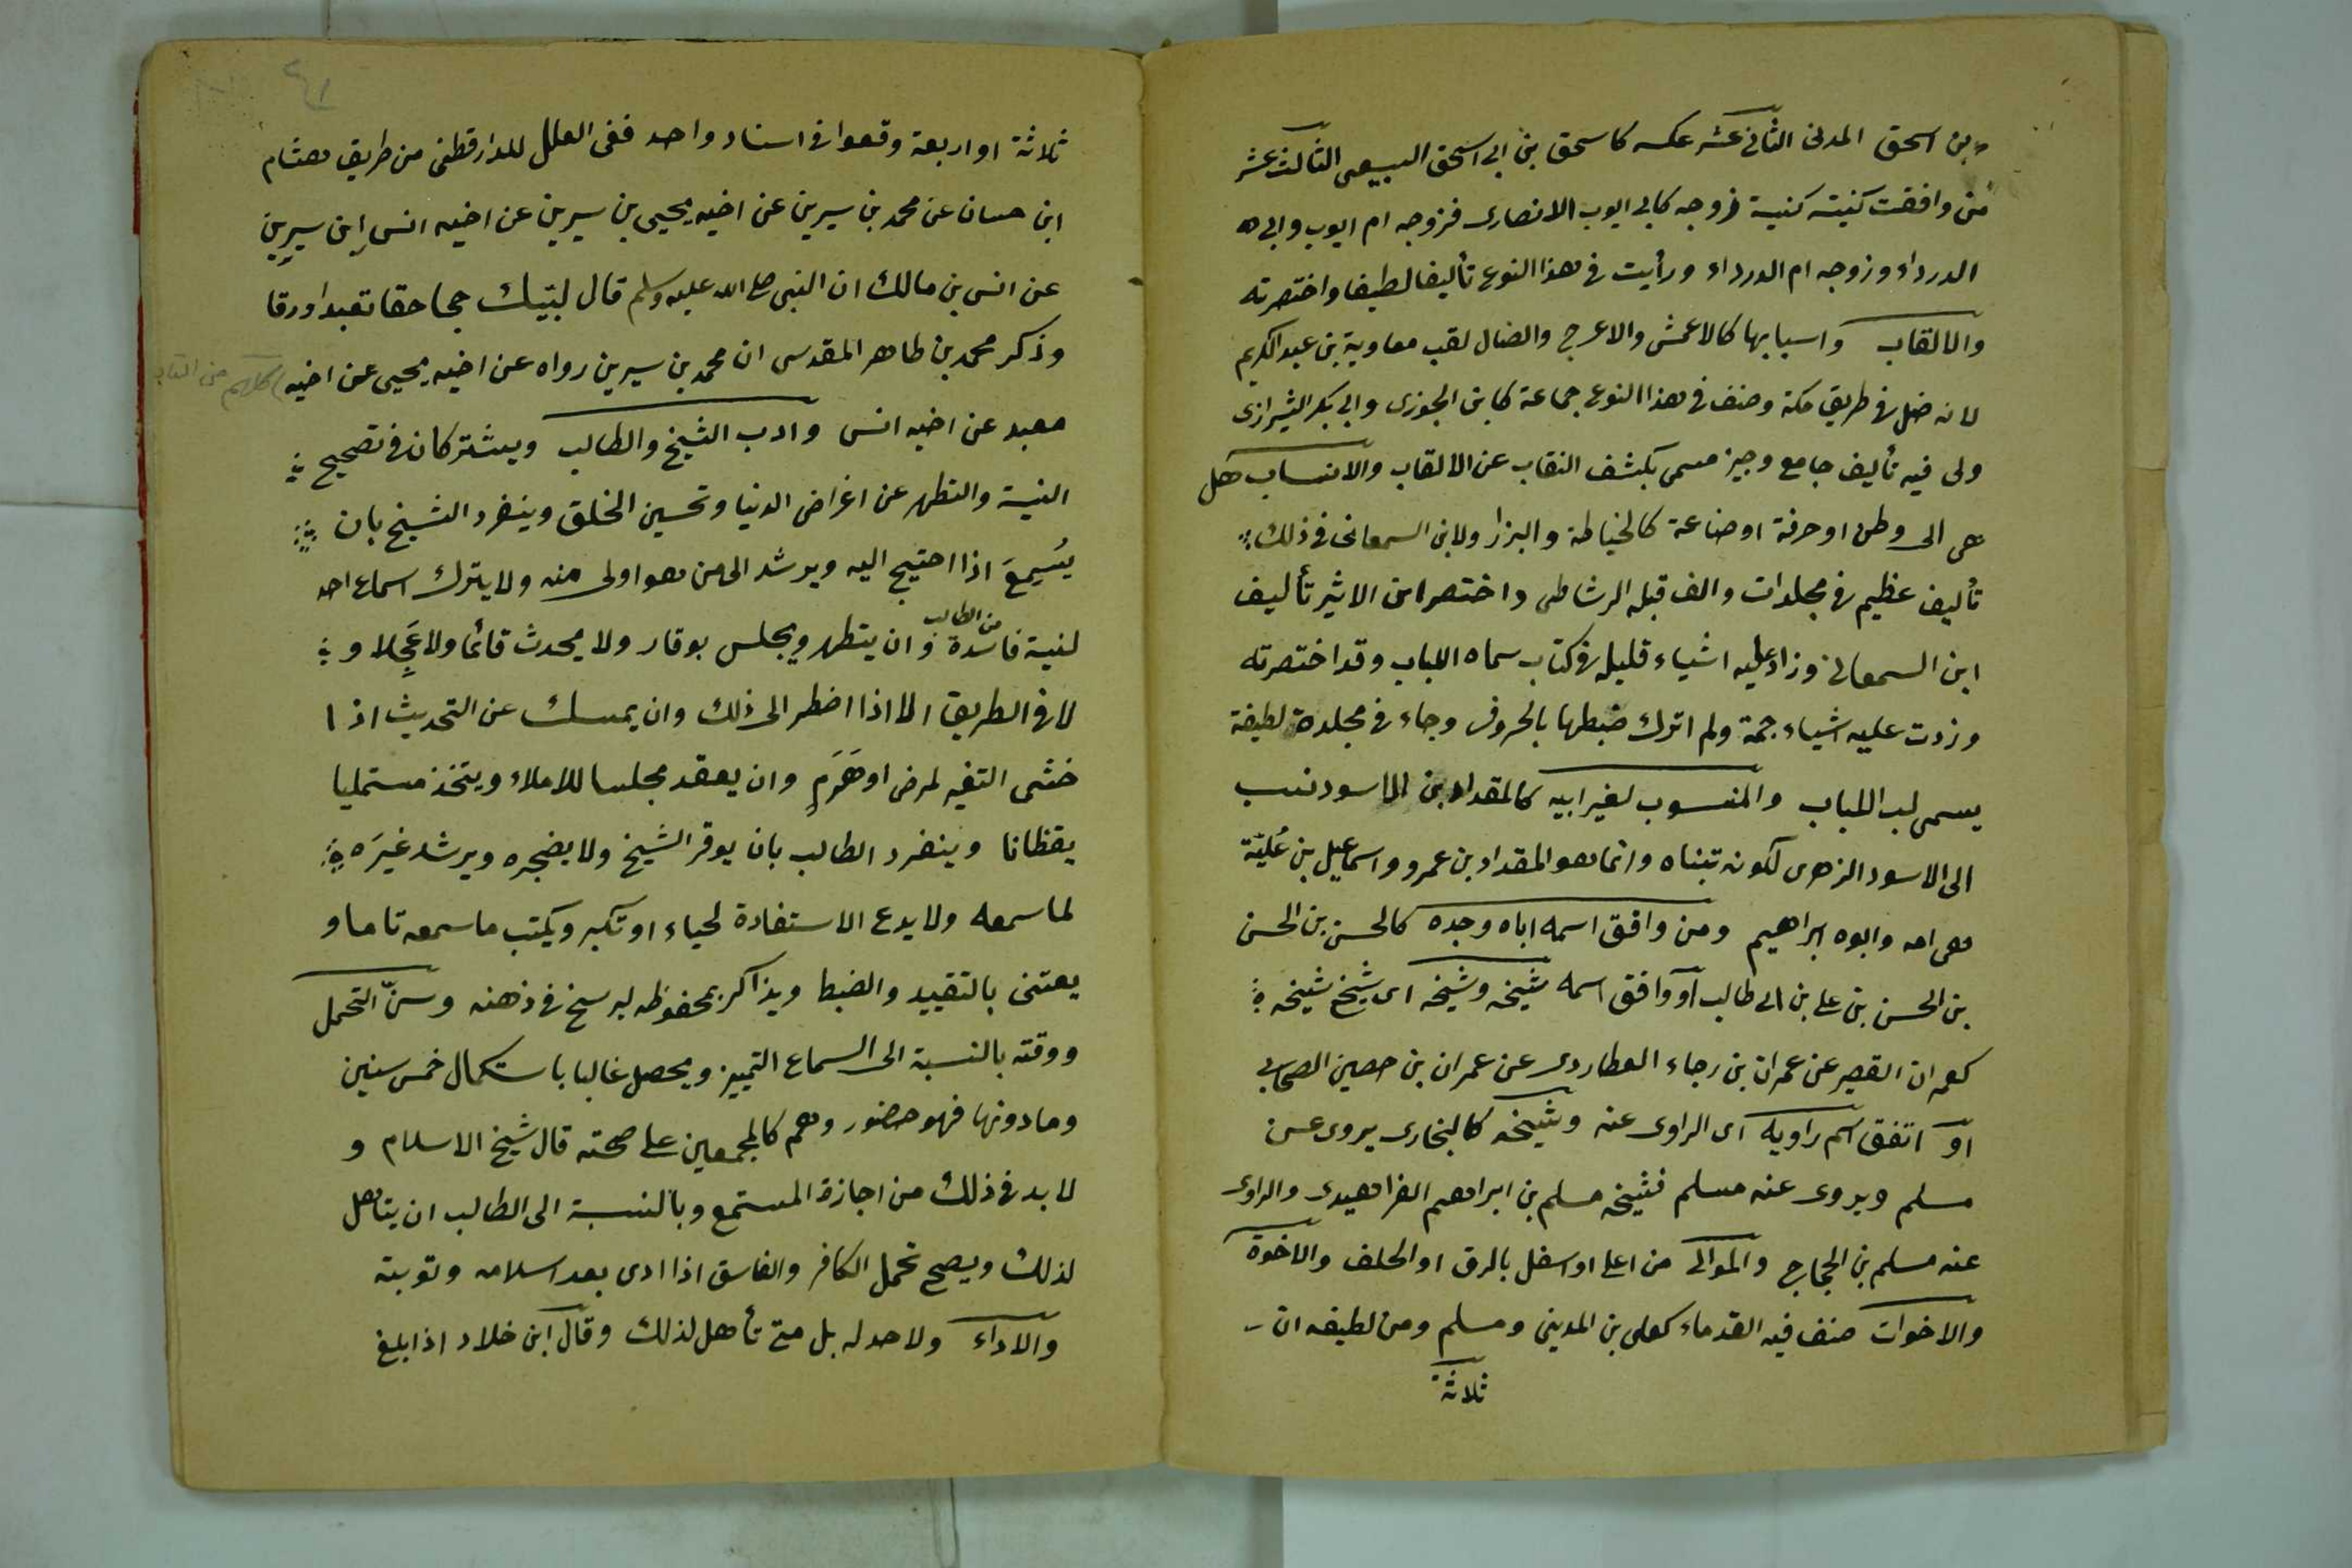 بن اسحق المدنى الثانى عشر عكسه كاسحق بن ابى اسحق السبيعى الثالث عشر
من وافقت كنيته كنية زوجه كابى ايوب الانصارى فزوجه ام ايوب وابى
الدرداء وزوجه ام الدرداء ورأيت فى هذا النوع تأليفا لطيفا واختصرته
والالقاب واسبابها كالاعمش والاعرج والضال لقب معاوية بن عبد الكريم
لانه ضل فى طريق مكة وصنف فى هذا النوع جماعة كابن الجوزى وابى بكر الشيرازى
ولى فيه تأليف جامع وجيز مسمى بكشف النقاب عن الالقاب والانساب هل
هى الى وطن او حرفة او صناعة كالخياطة والبزاز ولابن السمعانى فى ذلك
تأليف عظيم فى مجلدات والف قبله الرشاطى واختصر ابن الاثير تأليف
ابن السمعانى وزاد عليه اشياء قليلة فى كتاب سماه اللباب وقد اختصرته
وزدت عليه اشياء جمة ولم اترك ضبطها بالحروف وجاء فى مجلدة لطيفة
يسمى لب اللباب والمنسوب لغير ابيه كالمقداد بن الاسود نسب
الى الاسود الزهرى لكونه تبناه وانما هو المقداد بن عمرو واسماعيل بن عُليّة
هى امه وابوه ابراهيم ومن وافق اسمه اباه وجده كالحسن بن الحسن
بن الحسن بن على بن ابى طالب او وافق اسمه شيخه وشيخه اى شيخ شيخه
كعمران القصير عن عمران بن رجاء العطاردى عن عمران بن حصين الصحابى
او اتفق اسم راويه اى الراوى عنه وشيخه كالبخارى يروى عن
مسلم ويروى عنه مسلم فشيخه مسلم بن ابراهيم الفراهيدى والراوى
عنه مسلم بن الحجاج والموالى من اعلى او اسفل بالرق او الحلف والاخوة
والاخوات صنف فيه القدماء كعلى بن المدينى ومسلم ومن لطيفه ان
ثلاثة
٤١
ثلاثة او اربعة وقعوا فى اسناد واحد ففى العلل للدارقطنى من طريق هشام
ابن حسان عن محمد بن سيرين عن اخيه يحيى بن سيرين عن اخيه انس ابن سيرين
عن انس بن مالك ان النبى صلى الله عليه وسلم قال لبيك حجا حقا تعبدا ورقا
وذكر محمد بن طاهر المقدسى ان محمد بن سيرين رواه عن اخيه يحيى عن اخيه
معبد عن اخيه انس وادب الشيخ والطالب ويشتركان فى تصحيح
النية والتطهر عن اغراض الدنيا وتحسين الخلق وينفرد الشيخ بان
يُسمِعَ اذا احتيج اليه ويرشد الى من هو اولى منه ولا يترك اسماع احد
لنية فاسدة من الطالب وان يتطهر ويجلس بوقار ولا يحدث قائما ولا عَجِلا و
لا فى الطريق الا اذا اضطر الى ذلك وان يمسك عن التحديث اذا
خشى التغير لمرض او هَرَمٍ وان يعقد مجلسا للاملاء ويتخذ مستمليا
يقظانا وينفرد الطالب بان يوقر الشيخ ولا يضجره ويرشد غيرَه
لما سمعه ولا يدع الاستفادة لحياء او تكبر ويكتب ما سمعه تاما و
يعتنى بالتقييد والضبط ويذاكر بمحفوظه ليرسخ فى ذهنه وسنّ التحمل
ووقته بالنسبة الى السماع التمييز ويحصل غالبا باستكمال خمس سنين
وما دونها فهو حضور وهم كالمجمعين على صحته قال شيخ الاسلام و
لا بد فى ذلك من اجازة المستمع وبالنسبة الى الطالب ان يتاهل
لذلك ويصح تحمل الكافر والفاسق اذا ادى بعد اسلامه وتوبته
والاداء ولا حد له بل متى تأهل لذلك وقال ابن خلاد اذا بلغ